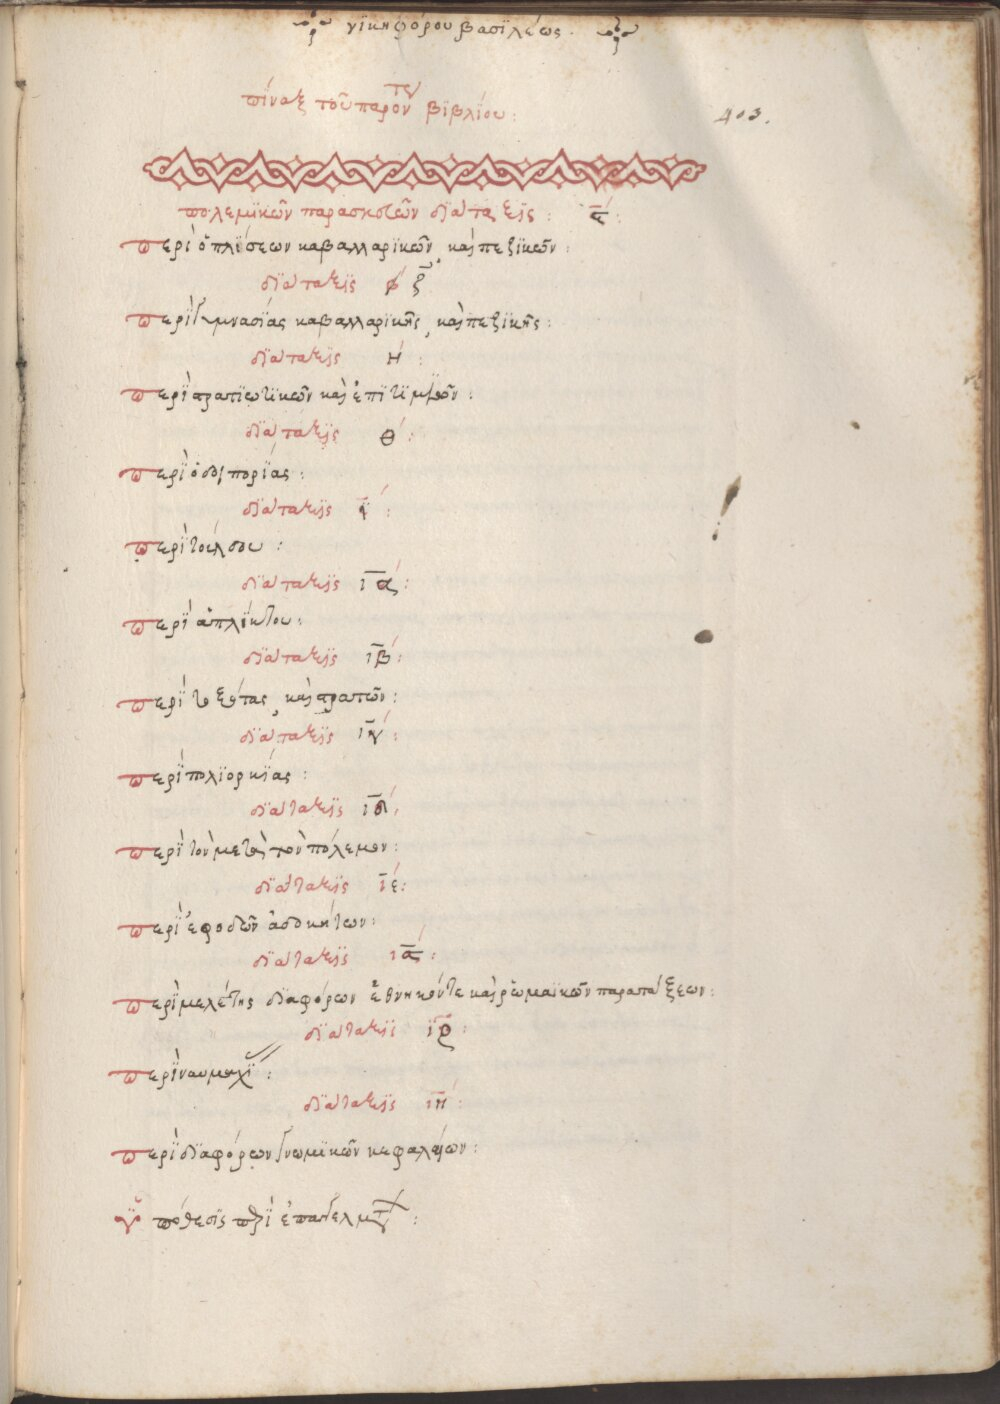 νικηφόρου βασιλέως.
πίναξ τοῦ παρόντος βιβλίου:
403.
πολεμικῶν παρασκευῶν διάταξις: ε̄:
περὶ ὁπλίσεων καβαλλαρικῶν, καὶ πεζικῶν:
διάταξις ξ̄
περὶ γυμνασίας καβαλλαρικῆς, καὶ πεζικῆς:
διάταξις η:
περὶ στρατιωτικῶν καὶ ἐπιτιμίων:
διάταξις θ:
περὶ ὁδοιπορίας:
διάταξις ῑ:
περὶ τούλδου:
διάταξις ῑᾱ:
περὶ ἀπλίκτου:
διάταξις ῑβ̄:
περὶ καὶ:
διάταξις ῑγ̄:
περὶ πολιορκίας:
διάταξις ῑδ̄:
περὶ τὸν μετὰ τὸν πόλεμον:
διάταξις ῑε:
περὶ ἐφοδῶν ἀδοκήτων:
διάταξις
περὶ μελέτης διαφόρων ἐθνικῶν τε καὶ ῥωμαϊκῶν παρατάξεων:
διάταξις
περὶ ναυμαχί:
διάταξις ῑη̄:
περὶ διαφόρων γνωμικῶν κεφαλαίων:
ὑπόθεσις περὶ